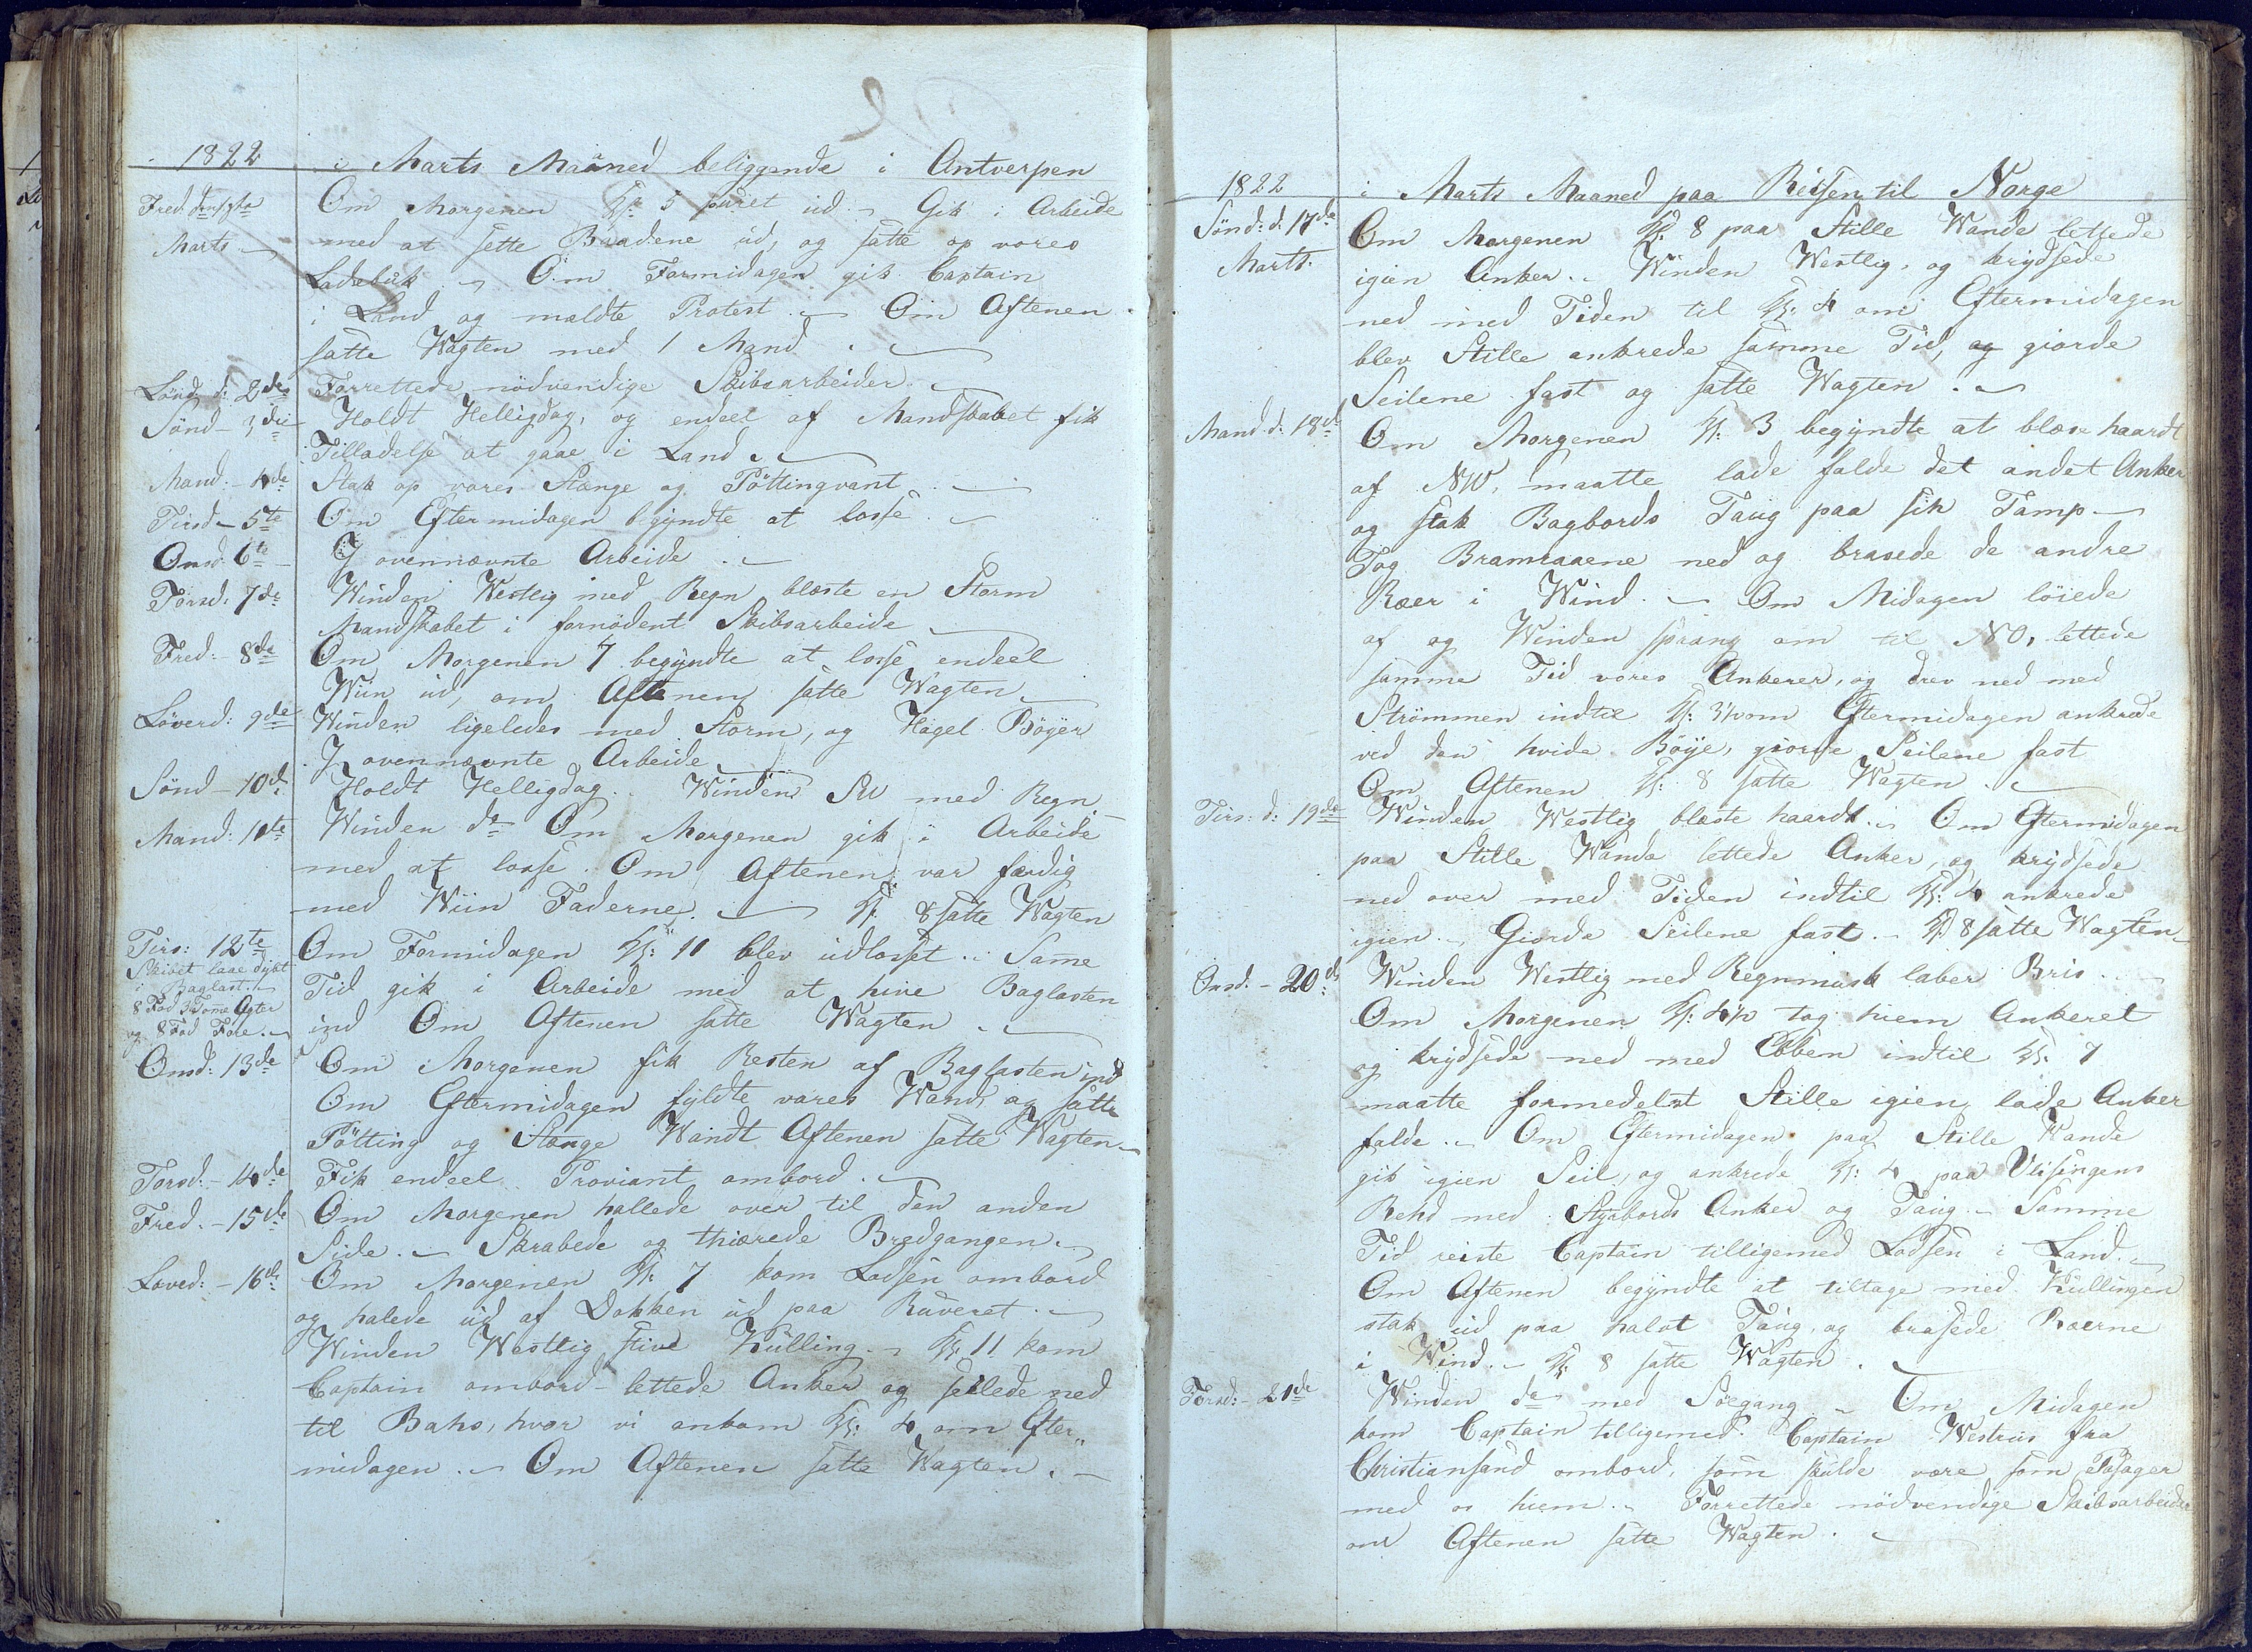 1822 i Marts Maaned beliggende i Antverpen
Fred. den 1ste Om Morgenen Kl: 5 purret ud. Gik i Arbeide
Marts med at sette Baadene ud, og satte op vores
Ladebuk. Om Formidagen gik Captain
i Land og mældte Protest. Om Aftenen
satte Wagten med 1 Mand.
Lövd. d: 2den Forrettede nödvendige Skibsarbeider.
Sönd - 3die Holdt Helligdag, og endeel af Mandskabet fik
Tilladelse at gaae i Land.
Mand: 4de Stak op vores Stænge og Pöttingvant
Tirsd - 5te Om Eftermidagen begyndte at losse.
Onsd. 6te I ovennævnte Arbeide.
Torsd. 7de Winden Westlig med Regn blæste en Storm
Mandskabet i fornödent Skibsarbeide
Fred. 8de Om Morgenen 7 begyndte at losse endeel
Wiin ud, om Aftenen satte Wagten
Löverd: 9de Winden ligeledes med Storm, og Hagel Böger
I ovennævnte Arbeide
Sönd - 10de Holdt Helligdag. Winden SW med Regn
Mand: 11te Winden do Om Morgenen gik i Arbeide
med at losse. Om Aftenen var færdig
med Wiin Faderne. Kl. 8 satte Wagten
Tirs: 12te Om Formidagen Kl: 11 blev udlosset. Same
Skibet laae dybt
i Baglast. Tid gik i Arbeide med at hive Baglasten
8 Fod 3 Tome Agter
og 8 Fod Fore. ind Om Aftenen satte Wagten
Onsd: 13de Om Morgenen fik Resten af Baglasten ind
Om Eftermidagen fyldte vores Wand, og satte
Pötting og Stænge Wandt Aftenen satte Wagten
Torsd: - 14de Fik endeel Proviant ombord.
Fred. - 15de Om Morgenen hallede over til den anden
Side. Skrabede og thiærede Bredgangen.
Loverd: - 16de Om Morgenen Kl: 7 kom Lodsen ombord
og halede ud af Dokken ud paa Ruveret.
Winden Westlig stive Kulling. Kl: 11 kom
Captain ombord - lettede Anker og seilede ned
til Baho, hvor vi ankom Kl: 4 om Efter„
midagen. Om Aftenen satte Wagten.
1822 i Marts Maaned paa Reisen til Norge
Sönd: d. 17de Om Morgenen Kl: 8 paa Stille Wande lettede
Marts. igien Anker. Winden Westlig, og krydsede
ned med Tiden til Kl: 4 om Eftermidagen
blev Stille ankrede samme Tid, og giorde
Seilene fast og satte Wagten.
Mand. d: 18de Om Morgenen Kl: 3 begyndte at blæse haardt
af NW, maatte lade falde det andet Anker
og stak Bagbords Taug paa sik Tamp
Tog Bramraaene ned og brasede de andre
Ræer i Wind. Om Midagen löiede
af og Winden spraang om til NO, lettede
samme Tid vores Ankerer, og drev ned med
Strömmen indtil Kl: 3½ om Eftermidagen ankrede
ved den hvide Böye, giorde Seilene fast
Om Aftenen Kl: 8 satte Wagten.
Tirs: d: 19de Winden Westlig blæste haardt. Om Eftermidagen
paa Stille Wande lettede Anker, og krydsede
ned over med Tiden indtil Kl: 4 ankrede
igien. Giorde Seilene fast. Kl 8 satte Wagten
Onsd. - 20de Winden Westlig med Regnmusk laber Bris.
Om Morgenen Kl: 4½ tog hiem Ankeret
og krydsede ned med Ebben indtil Kl: 7
maatte formedelst Stille igien lade Anker
falde. Om Eftermidagen paa Stille Wande
gik igien Seil, og ankrede Kl: 4 paa Vlisingens
Rehd med Styrbords Anker og Taug. Samme
Tid reiste Captain tilligemed Lodsen i Land.
Om Aftenen begyndte at tiltage med Kullingen
stak ud paa halvt Taug, og brasede Ræerne
i Wind. Kl: 8 satte Wagten.
Torsd: - 21de Winden do med Söegang. Om Midagen
kom Captain tilligemed Captain Westrus fra
Christiansand ombord, som skulde være som Passager
med os hiem. Forrettede nödvendige Skibsarbeider
om Aftenen satte Wagten.